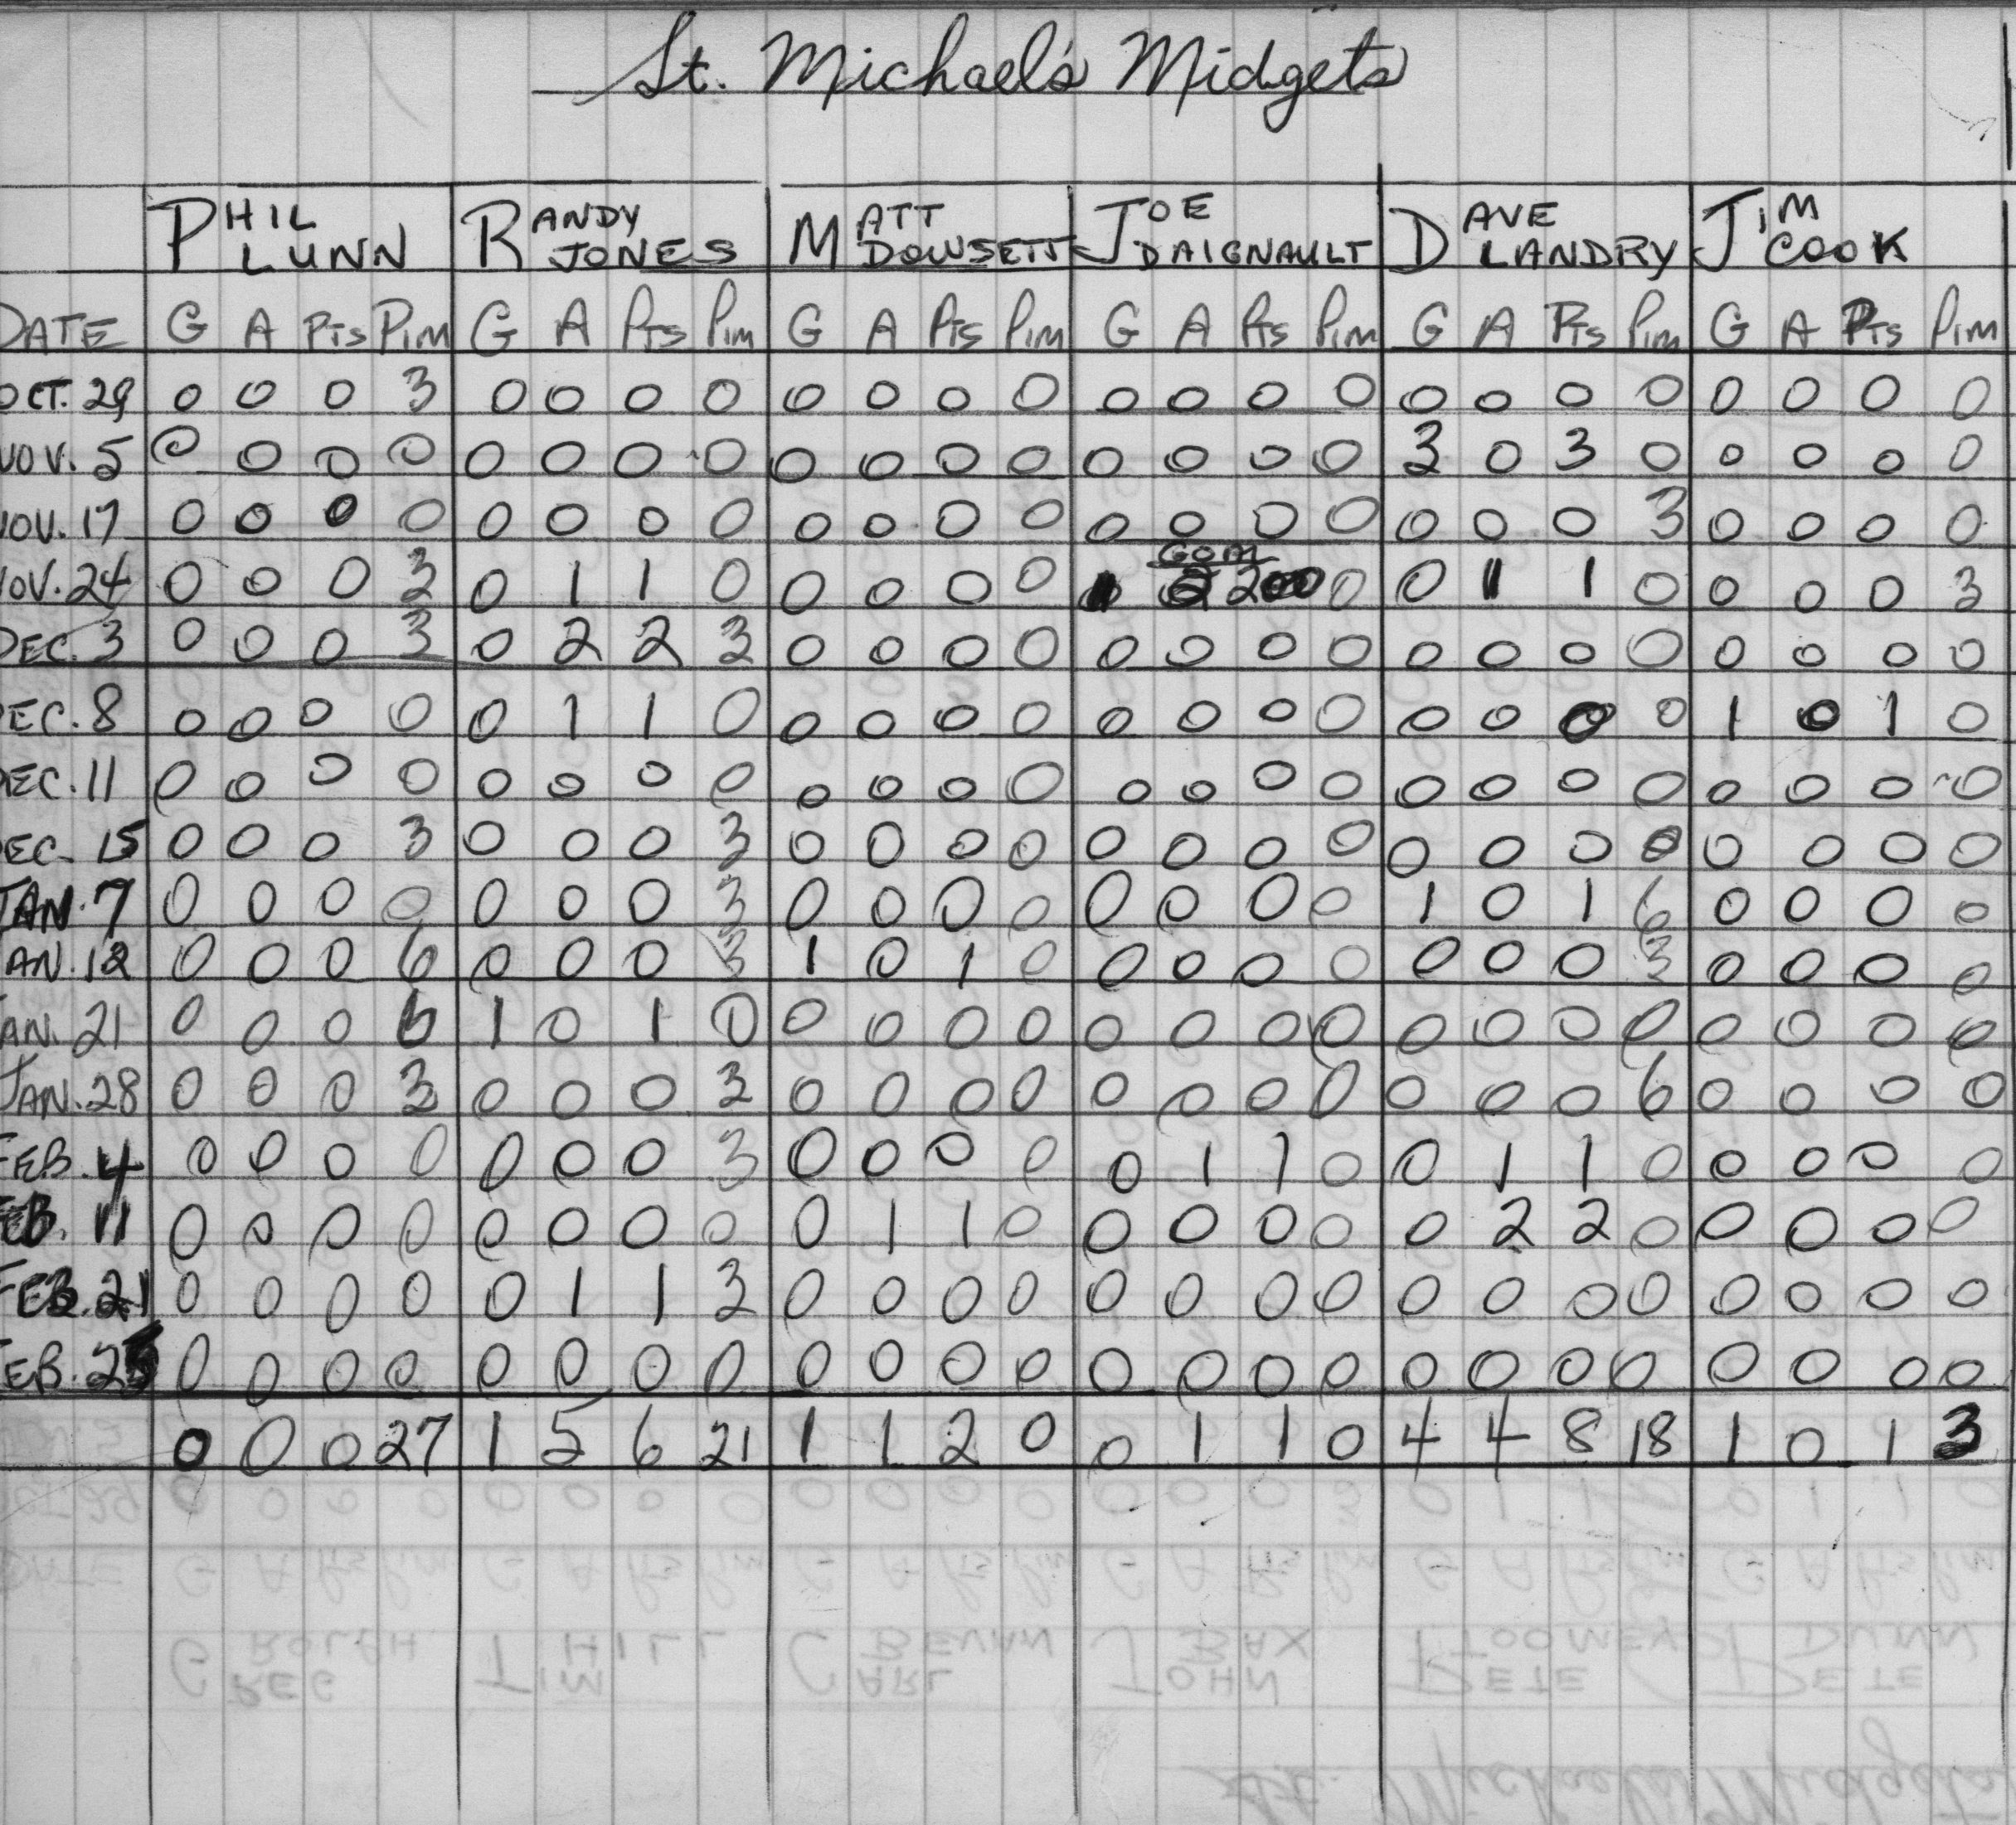 St. Michael's Midgets
PHIL LUNN RANDY JONES MATT DOWSETT JOE DAIGNAULT DAVE LANDRY JIM COOK
DATE G A PTS PIM G A PTS PIM G A PTS PIM G A PTS PIM G A PTS PIM G A PTS PIM
OCT. 29 0 0 0 3 0 0 0 0 0 0 0 0 0 0 0 0 0 0 0 0 0 0 0 0
NOV. 5 0 0 0 0 0 0 0 0 0 0 0 0 0 0 0 0 3 0 3 0 0 0 0 0
NOV. 17 0 0 0 0 0 0 0 0 0 0 0 0 0 0 0 0 0 0 0 3 0 0 0 0
NOV. 24 0 0 0 3 0 1 1 0 0 0 0 0 2 0 0 1 1 0 0 0 0 3
DEC. 3 0 0 0 3 0 2 2 3 0 0 0 0 0 0 0 0 0 0 0 0 0 0 0 0
DEC. 8 0 0 0 0 0 1 1 0 0 0 0 0 0 0 0 0 0 0 0 0 1 0 1 0
DEC. 11 0 0 0 0 0 0 0 0 0 0 0 0 0 0 0 0 0 0 0 0 0 0 0 0
DEC. 15 0 0 0 3 0 0 0 3 0 0 0 0 0 0 0 0 0 0 0 0 0 0 0 0
JAN. 7 0 0 0 0 0 0 0 3 0 0 0 0 0 0 0 0 1 0 1 6 0 0 0 0
JAN. 12 0 0 0 6 0 0 0 3 1 0 1 0 0 0 0 0 0 0 0 3 0 0 0 0
JAN. 21 0 0 0 6 1 0 1 0 0 0 0 0 0 0 0 0 0 0 0 0 0 0 0 0
JAN. 28 0 0 0 3 0 0 0 3 0 0 0 0 0 0 0 0 0 0 0 6 0 0 0 0
FEB. 4 0 0 0 0 0 0 0 3 0 0 0 0 0 1 1 0 0 1 1 0 0 0 0 0
FEB. 11 0 0 0 0 0 0 0 0 0 1 1 0 0 0 0 0 0 2 2 0 0 0 0 0
FEB. 21 0 0 0 0 0 1 1 3 0 0 0 0 0 0 0 0 0 0 0 0 0 0 0 0
FEB. 25 0 0 0 0 0 0 0 0 0 0 0 0 0 0 0 0 0 0 0 0 0 0 0 0
0 0 0 27 1 5 6 21 1 1 2 0 0 1 1 0 4 4 8 18 1 0 1 3